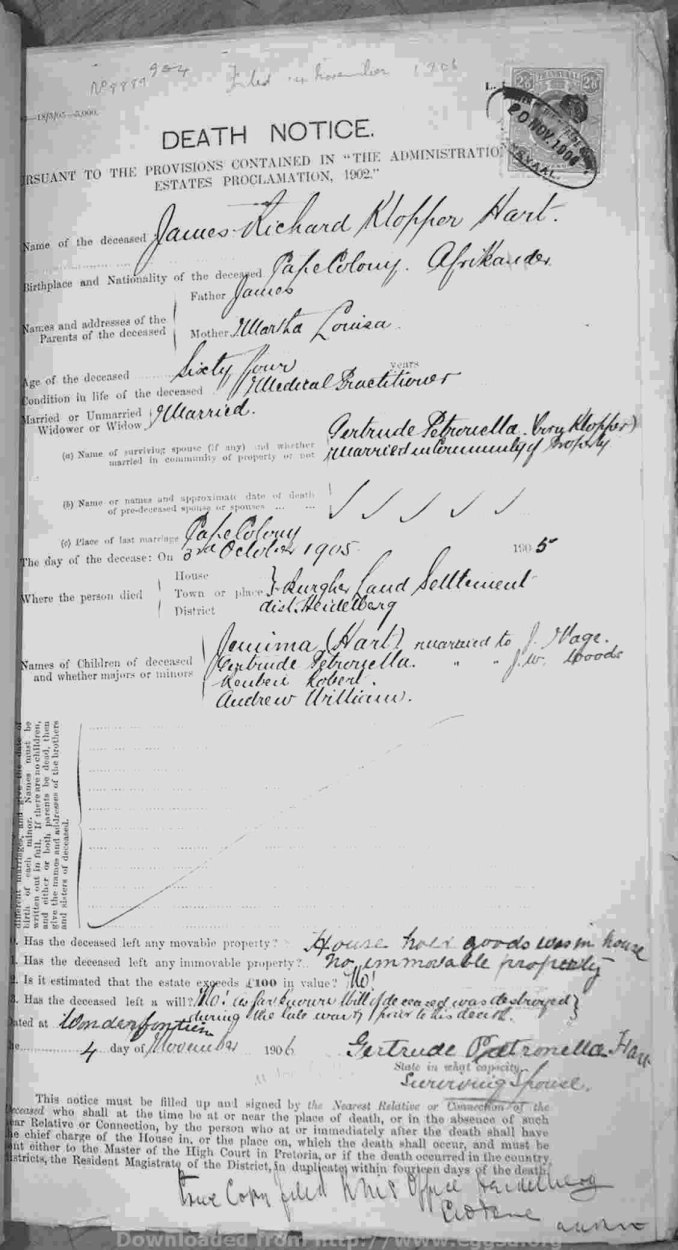 No 8889 904 Filed November 1906
—18/3/05—5,000.
L.
TRANSVAAL 2/6
20 NOV. 1906
TRANSVAAL
DEATH NOTICE.
RSUANT TO THE PROVISIONS CONTAINED IN "THE ADMINISTRATIO
ESTATES PROCLAMATION, 1902."
Name of the deceased James Richard Klopper Hart.
Birthplace and Nationality of the deceased Cape Colony. Afrikander
Names and addresses of the Parents of the deceased
Father James
Mother Martha Louisa
Age of the deceased Sixty four years
Condition in life of the deceased Medical Practitioner
Married or Unmarried Widower or Widow Married.
(a) Name of surviving spouse (if any) and whether married in community of property or not
Gertrude Petronella (born Klopper)
Married in Community of Property
(b) Name or names and approximate date of death of pre-deceased spouse or spouses ... ...
(c) Place of last marriage Cape Colony
The day of the decease: On 3rd October 1905 1905
Where the person died
House
Town or place
District
Burgher Land Settlement
dist. Heidelberg
Names of Children of deceased and whether majors or minors
Jemima (Hart) married to J. Wage.
Gertrude Petronella. " " J. W. Woods
Reuben Robert.
Andrew William.
different marriages, and give the date of
birth of each minor. Names must be
written out in full. If there are no children,
and either or both parents be dead, then
give the names and addresses of the brothers
and sisters of deceased.
Has the deceased left any movable property? House hold goods was in house
Has the deceased left any immovable property? no immovable property
Is it estimated that the estate exceeds £100 in value? No!
Has the deceased left a will? No! as far known Will of deceased was destroyed
during the late war, prior to his decease.
ated at Wonderfontein
4 day of November 1906
Gertrude Petronella Har
State in what capacity
Surviving Spouse.
This notice must be filled up and signed by the Nearest Relative or Connection of the
eceased who shall at the time be at or near the place of death, or in the absence of such
ear Relative or Connection, by the person who at or immediately after the death shall have
he chief charge of the House in, or the place on, which the death shall occur, and must be
ent either to the Master of the High Court in Pretoria, or if the death occurred in the country
istricts, the Resident Magistrate of the District, in duplicate, within fourteen days of the death.
True Copy filed RM's Office Heidelberg
Downloaded from http://www.eggsa.org